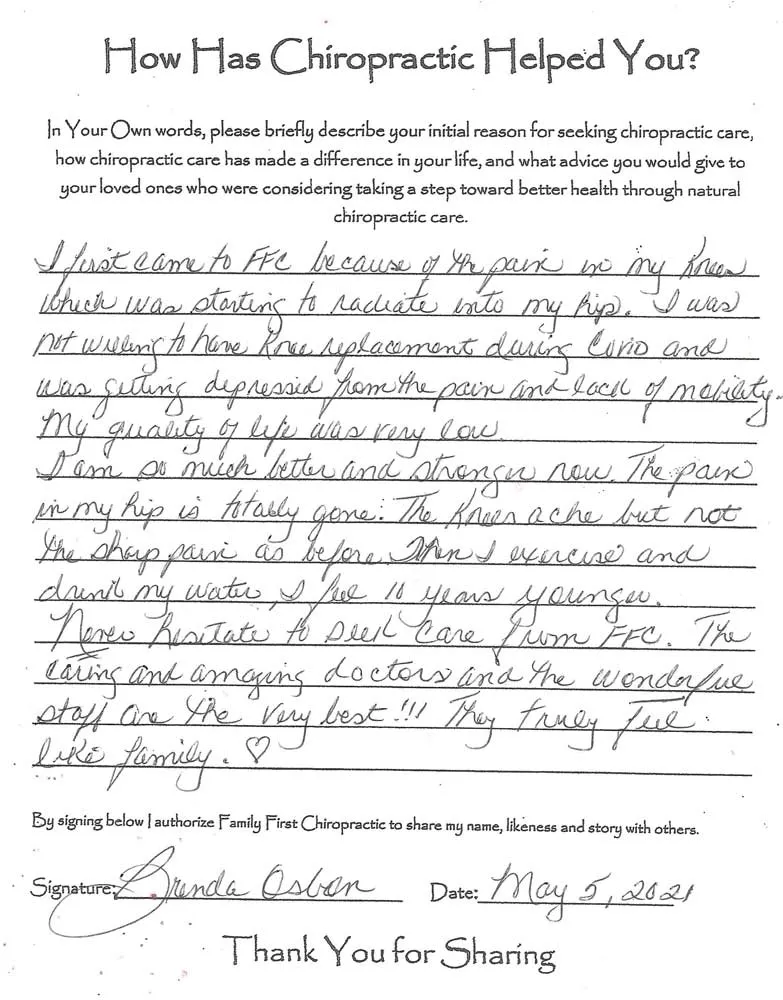 How Has Chiropractic Helped You?
In Your Own words, please briefly describe your initial reason for seeking chiropractic care,
how chiropractic care has made a difference in your life, and what advice you would give to
your loved ones who were considering taking a step toward better health through natural
chiropractic care.
I first came to FFC because of the pain in my knees
which was starting to radiate into my hip. I was
not willing to have knee replacement during Covid and
was getting depressed from the pain and lack of mobility.
My quality of life was very low.
I am so much better and stronger now. The pain
in my hip is totally gone. The knees ache but not
the sharp pain as before. When I exercise and
drink my water, I feel 10 years younger.
Never hesitate to seek care from FFC. The
caring and amazing doctors and the wonderful
staff are the very best!!! They truly feel
like family. ♡
By signing below I authorize Family First Chiropractic to share my name, likeness and story with others.
Signature: Brenda Osbon Date: May 5, 2021
Thank You for Sharing